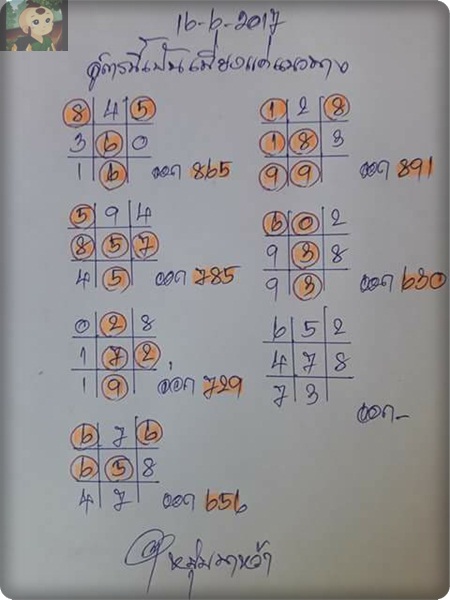 16-6-2017
สูตรนี้เป็นเพียงแค่แนวทาง
8 4 5
3 6 0
1 6
ออก 865
1 2 8
1 8 3
9 9
ออก 891
5 9 4
8 5 7
4 5
ออก 785
6 0 2
9 3 8
9 3
ออก 630
0 2 8
1 7 2
1 9
ออก 729
6 5 2
4 7 8
7 3
ออก -
6 7 6
6 5 8
4 7
ออก 656
หนุ่มนาหว้า